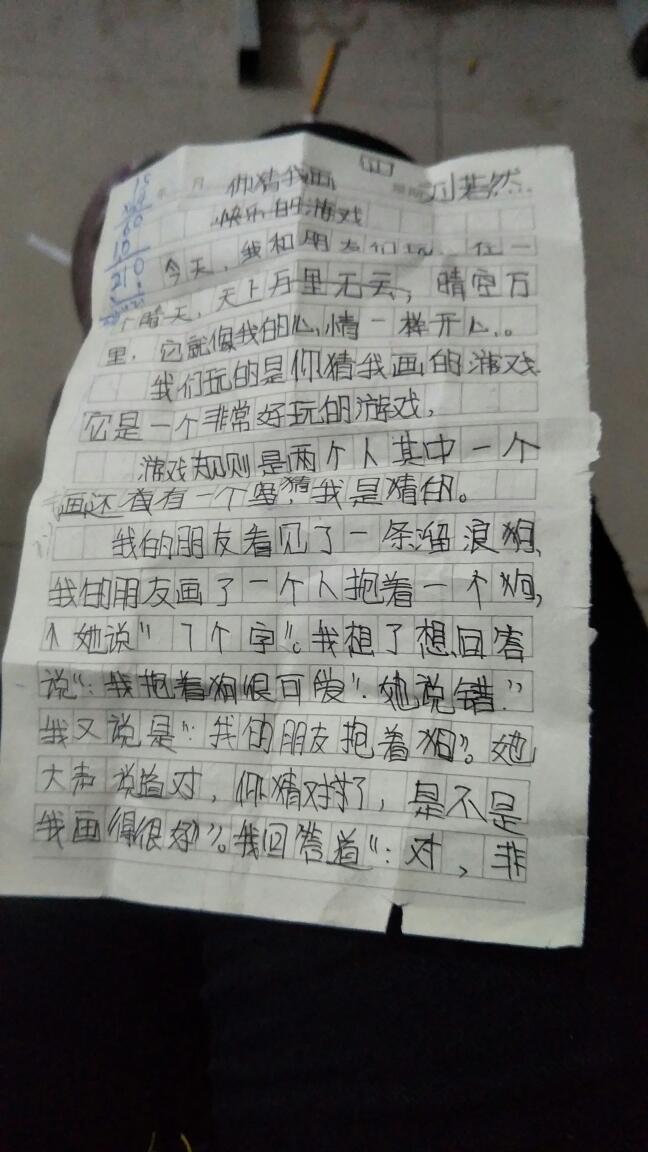 年 月 你猜我画 刘若然
快乐的游戏
今天,我和朋友们玩 在一
个晴天,天上万里无云,晴空万
里,它就像我的心情一样开心。
我们玩的是你猜我画的游戏
它是一个非常好玩的游戏,
游戏规则是两个人其中一个
画还有一个猜,我是猜的。
我的朋友看见了一条溜浪狗、
我的朋友画了一个人抱着一个狗,
她说"7个字"。我想了想回答
说":我抱着狗很可爱".她说错."
我又说是":我的朋友抱着狗"。她
大声说道对,你猜对了,是不是
我画得很好"。我回答道":对,非
15
60
15
210